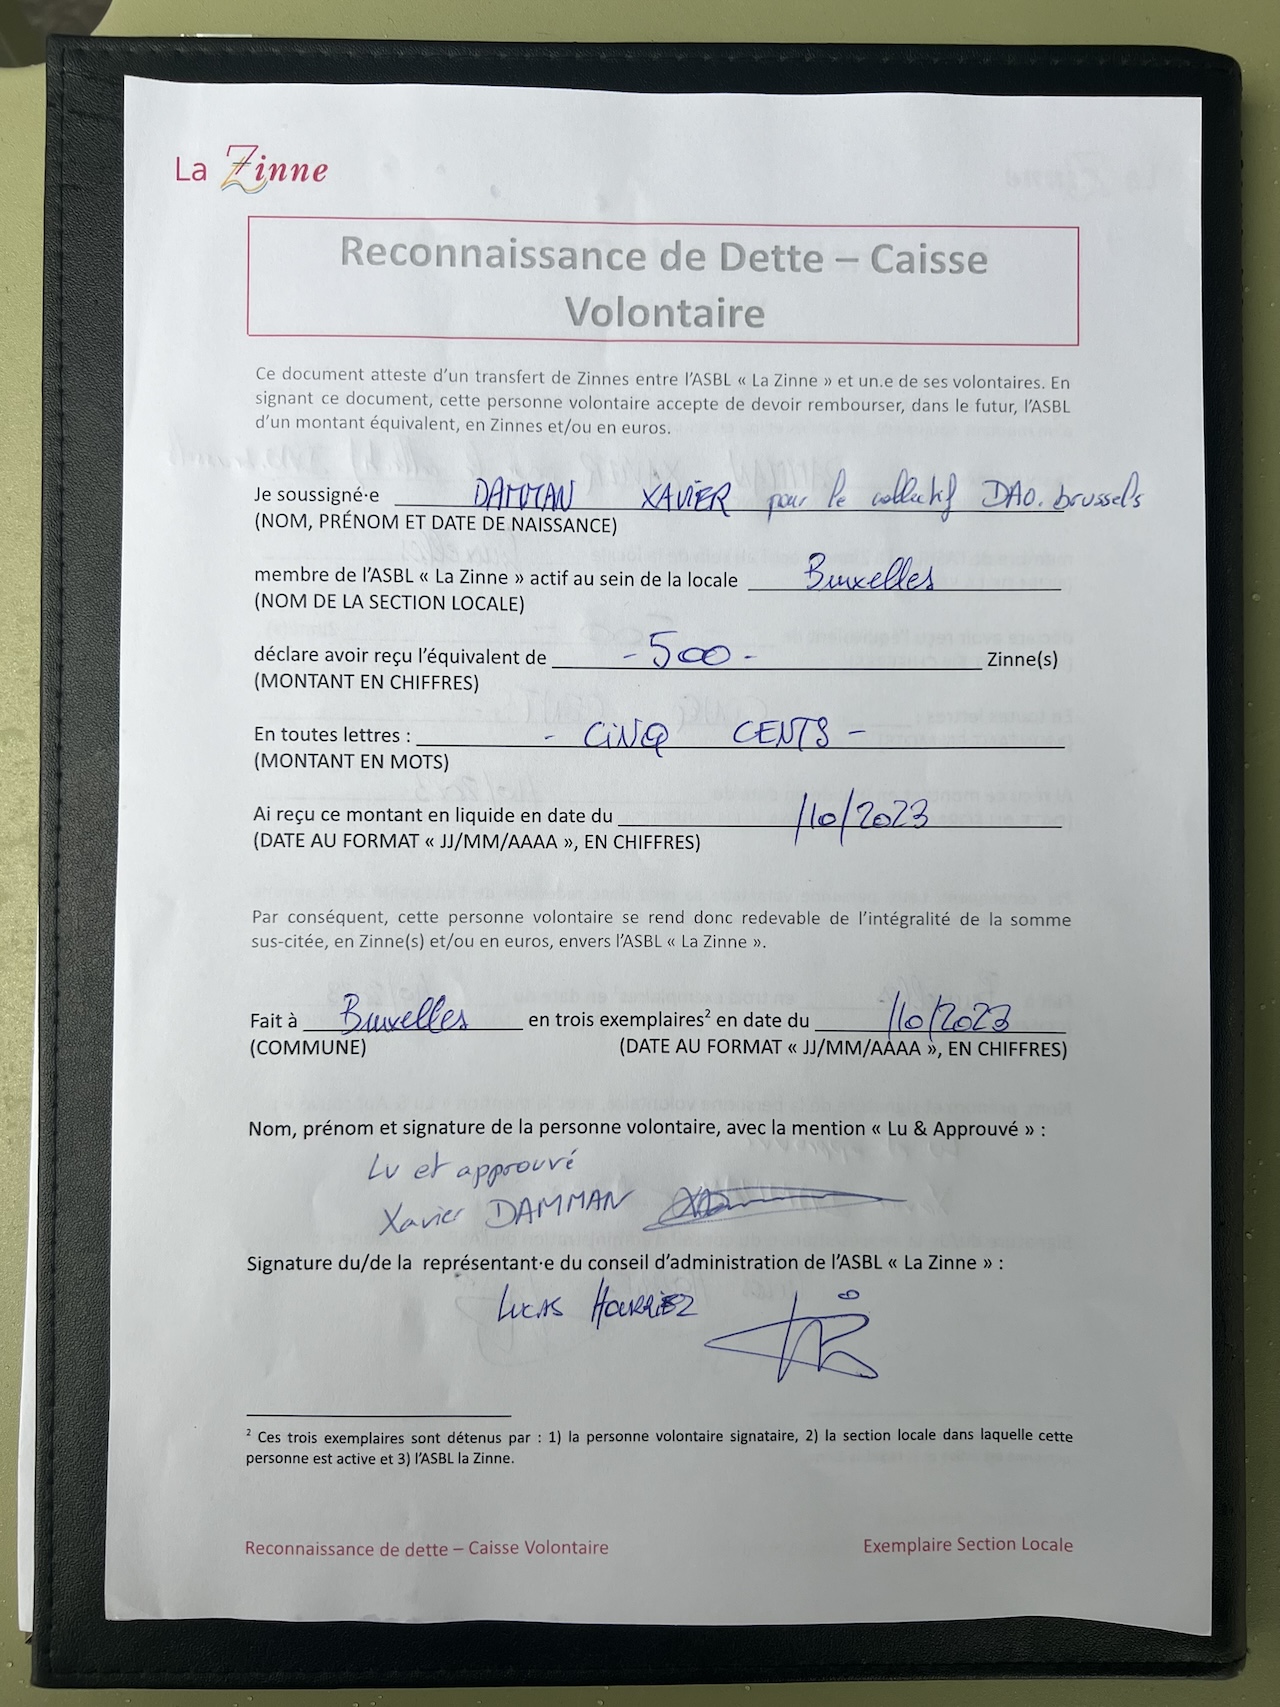 La Zinne
Reconnaissance de Dette – Caisse
Volontaire
Ce document atteste d'un transfert de Zinnes entre l'ASBL « La Zinne » et un.e de ses volontaires. En
signant ce document, cette personne volontaire accepte de devoir rembourser, dans le futur, l'ASBL
d'un montant équivalent, en Zinnes et/ou en euros.
Je soussigné·e DAMMAN XAVIER pour le collectif DAO.brussels
(NOM, PRÉNOM ET DATE DE NAISSANCE)
membre de l'ASBL « La Zinne » actif au sein de la locale Bruxelles
(NOM DE LA SECTION LOCALE)
déclare avoir reçu l'équivalent de - 500 - Zinne(s)
(MONTANT EN CHIFFRES)
En toutes lettres : - CINQ CENTS -
(MONTANT EN MOTS)
Ai reçu ce montant en liquide en date du /10/2023
(DATE AU FORMAT « JJ/MM/AAAA », EN CHIFFRES)
Par conséquent, cette personne volontaire se rend donc redevable de l'intégralité de la somme
sus-citée, en Zinne(s) et/ou en euros, envers l'ASBL « La Zinne ».
Fait à Bruxelles en trois exemplaires² en date du /10/2023
(COMMUNE) (DATE AU FORMAT « JJ/MM/AAAA », EN CHIFFRES)
Nom, prénom et signature de la personne volontaire, avec la mention « Lu & Approuvé » :
Lu et approuvé
Xavier DAMMAN
Signature du/de la représentant·e du conseil d'administration de l'ASBL « La Zinne » :
LUCAS HOURRIEZ
² Ces trois exemplaires sont détenus par : 1) la personne volontaire signataire, 2) la section locale dans laquelle cette
personne est active et 3) l'ASBL la Zinne.
Reconnaissance de dette – Caisse Volontaire Exemplaire Section Locale